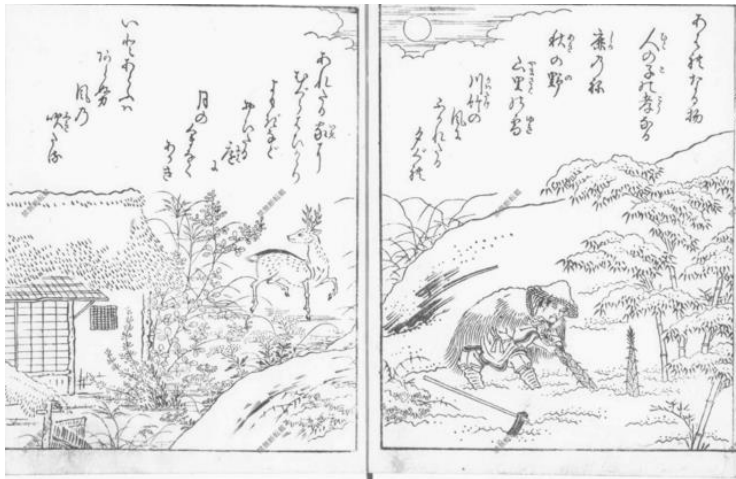 あはれなる物
人の子の孝ある
鹿乃祢
秋の野
山里の雪
川竹の
風に
ふかれたる
夕ぐれ
あれたる家に
むぐらはひかゝり
よもぎなど
おいたる
庭に
月のくまなく
あかき
いとあらふハ
あらぬ
風乃
吹たる